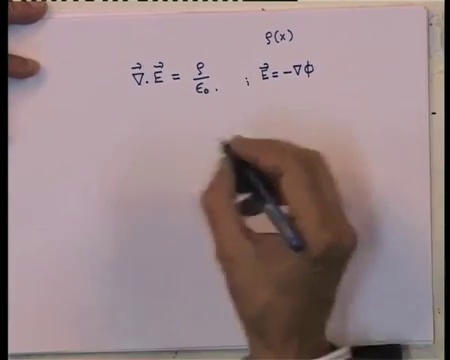 ρ(x)
∇⃗.E⃗ = ρ/ϵ₀. ; E⃗ = -∇Φ